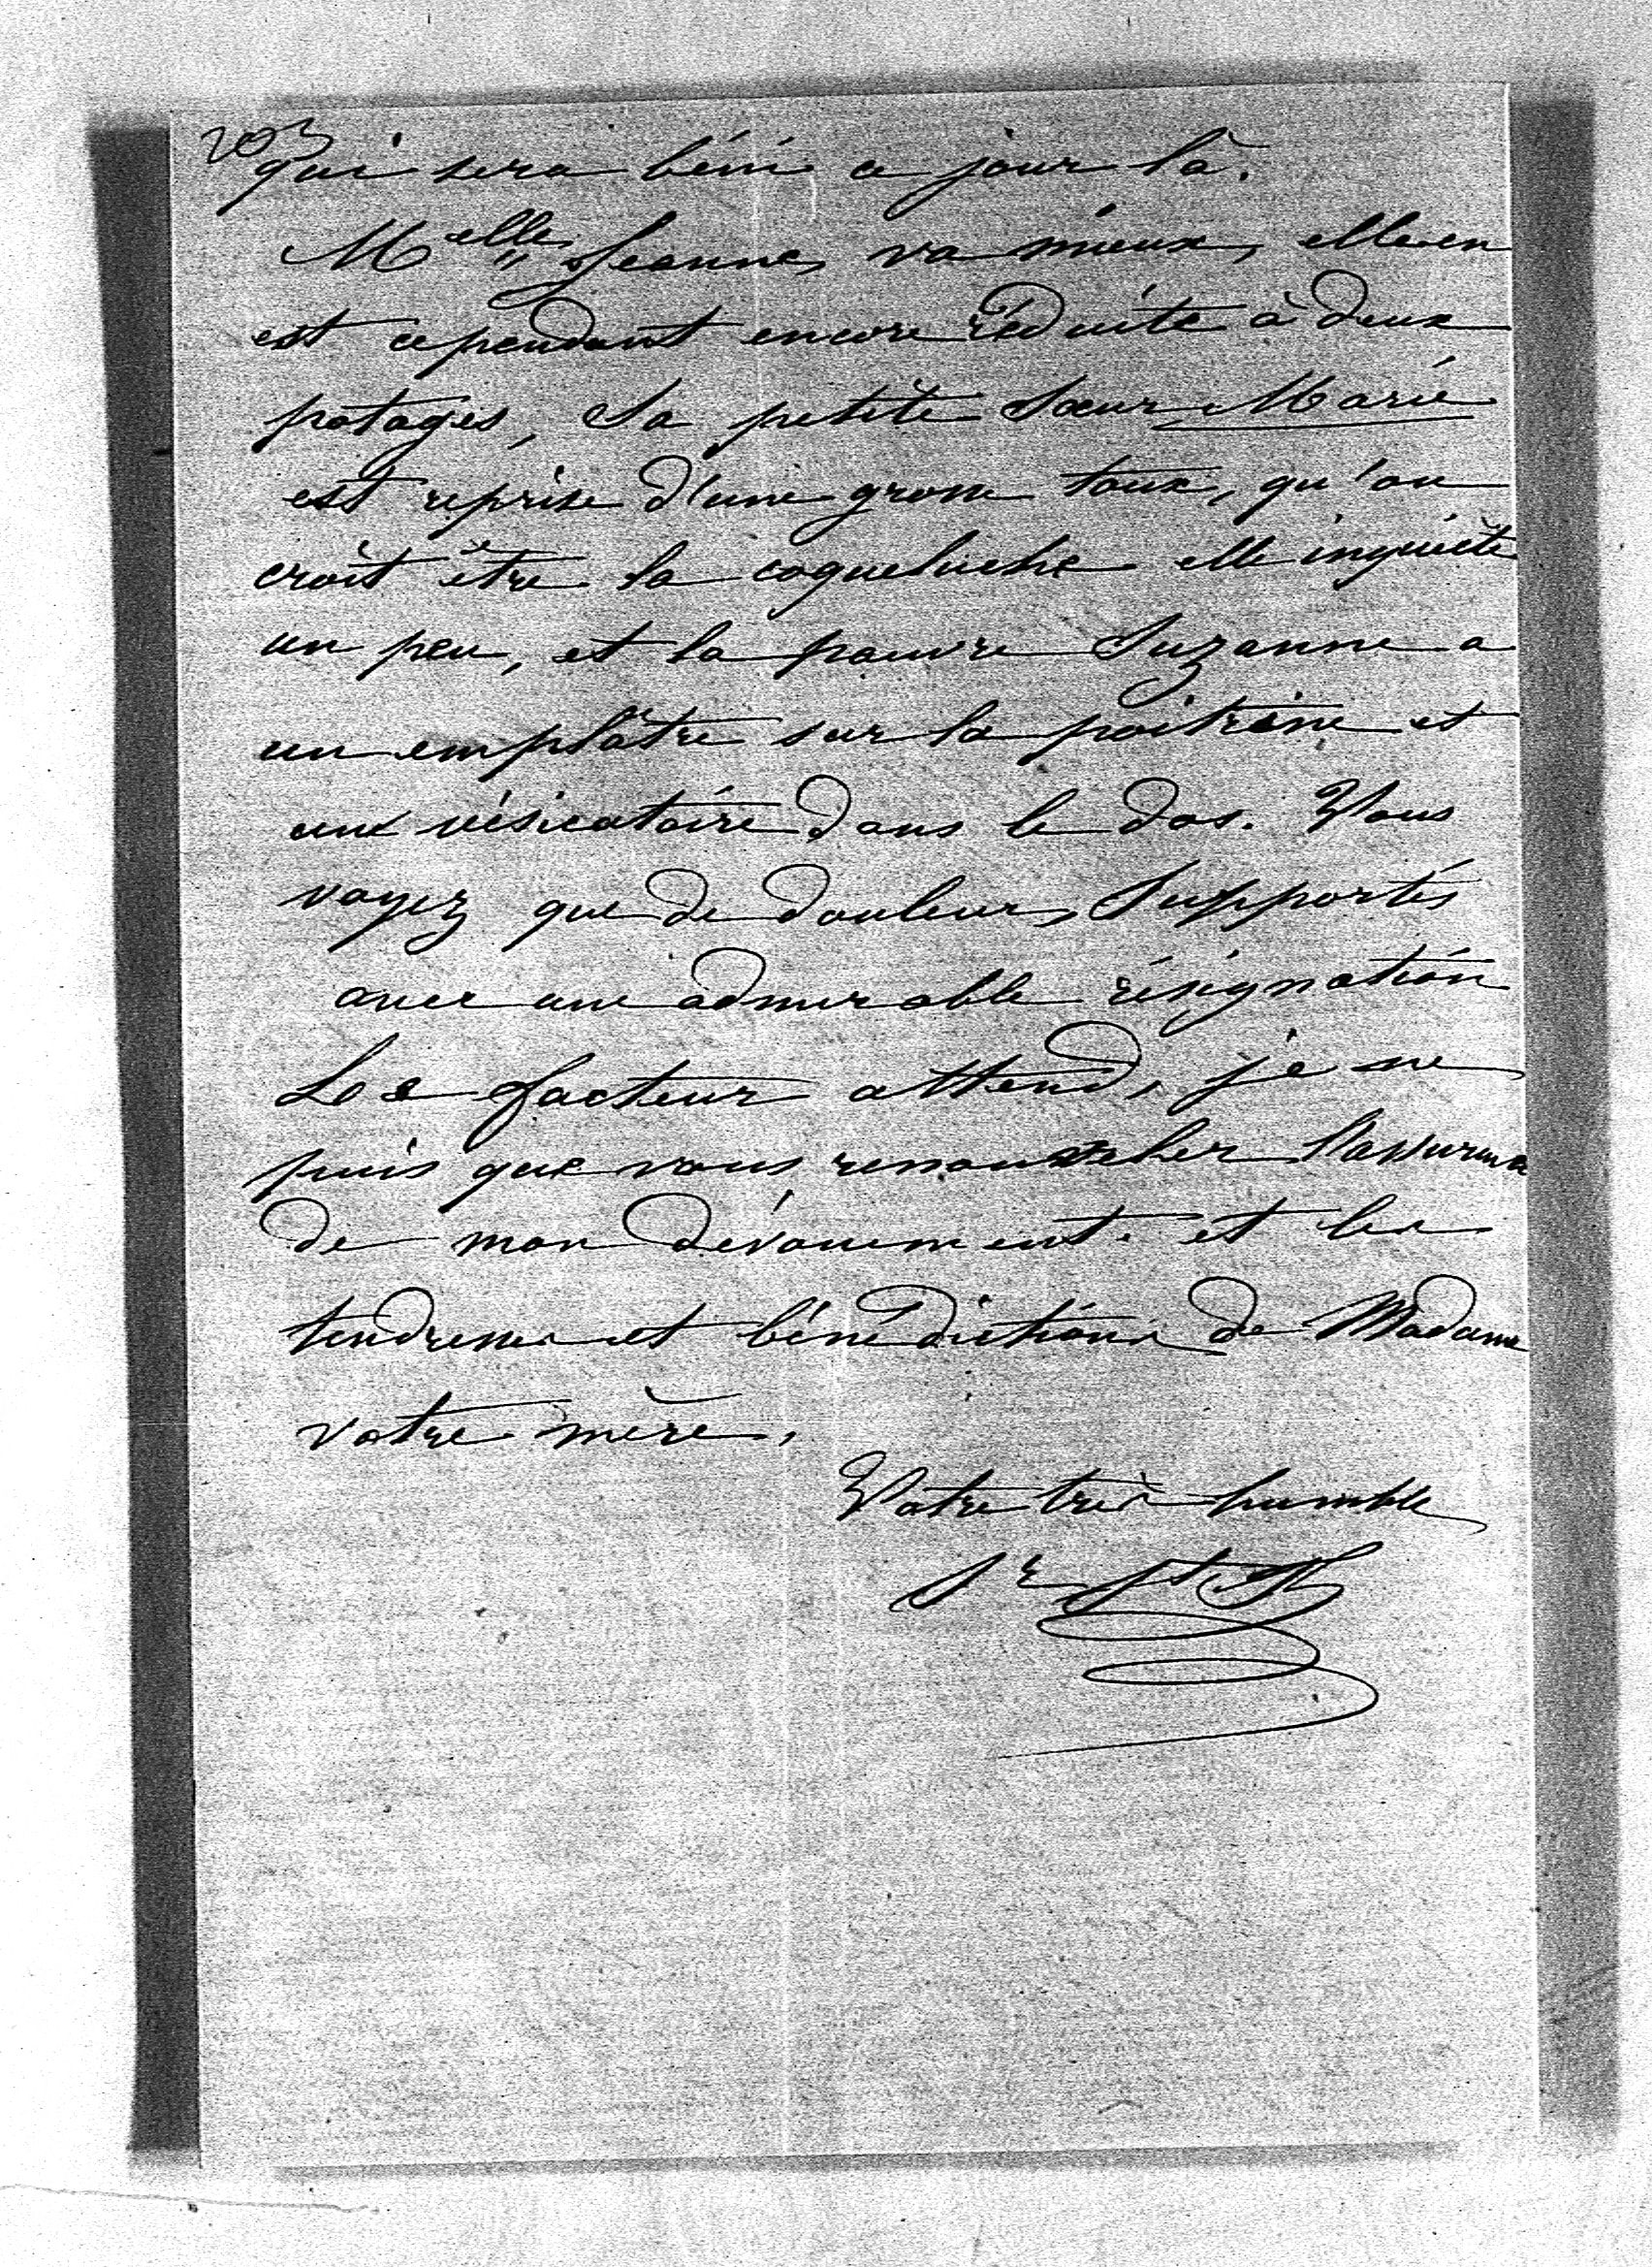 203
qui sera béni ce jour là.
Melle Jeanne, va mieux, elle en
est cependant encore réduite à deux
potages, Sa petite Sœur Marie
est reprise d'une grosse toux, qu'on
croit être la coqueluche elle inquiète
un peu, et la pauvre Suzanne a
un emplâtre sur la poitrine et
un vésicatoire dans le dos. Vous
voyez que de douleurs, Supportés
avec une admirable résignation
Le facteur attend, je ne
puis que vous l'assurance
de mon dévouement. et les
tendresses et bénédictions de Madame
votre mère,
Votre très humble
Sr St